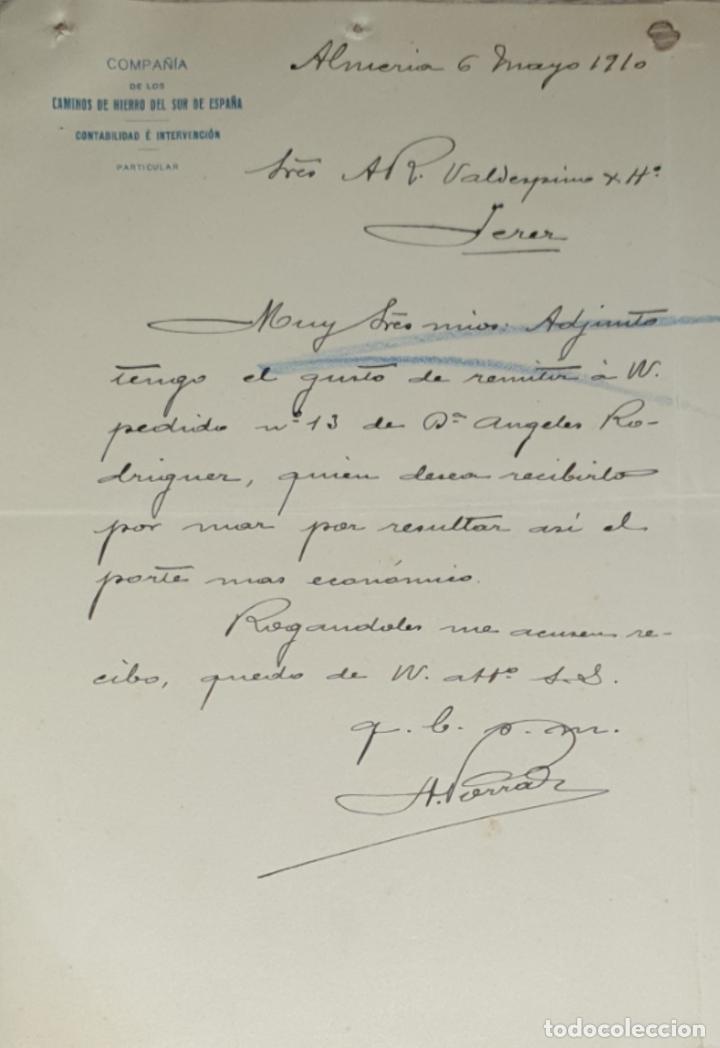 COMPAÑÍA
DE LOS
CAMINOS DE HIERRO DEL SUR DE ESPAÑA
CONTABILIDAD É INTERVENCIÓN
PARTICULAR
Almeria 6 Mayo 1910
Sres A R. Valdespino y Hº
Jerez
Muy Sres mios: Adjunto
tengo el gusto de remitir á VV.
pedido nº 13 de Dª Angeles Ro-
driguez, quien desea recibirlo
por mar por resultar así el
porte mas económico.
Rogandoles me acusen re-
cibo, quedo de VV. attº S.S.
q. b. s. m.
todocoleccion